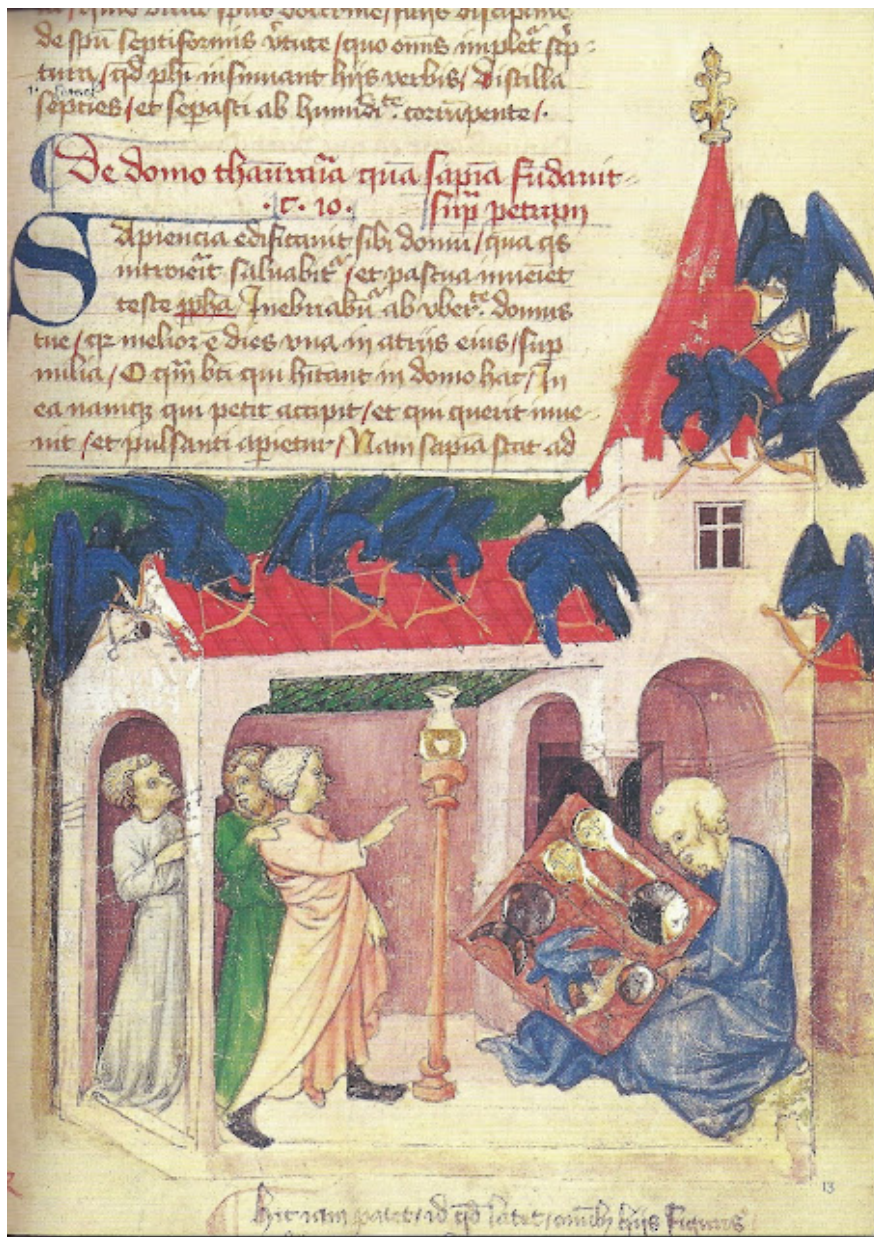 de spu septiformis v̄tute / quo om̄is implet᷑ sc̄p-
tura / qd̄ ph̄i insinuant hijs verbis / Distilla
septies / et sepasti ab humidi:te corrūpente /.
De domo thaurarīa quā sapīa fūdauit
.C. 10. sup̄ petram
Sapiencia edificauit sibi domū / qua q̄s
introierit saluabit᷑ / et pascua inueniet
teste ppha Inebriabūt᷑ ab vber:te domus
tue / qr melior ē dies vna in atrijs eius / sup̄
milia / O qm̄ bt̄i qui hitant in domo hac / In
ea namq; qui petit accipit / et qui querit inue
nit / et pulsanti apietur / Nam sapīa stat ad
13
hic iam patet / id qd̄ latet / omnib; hijs figuris